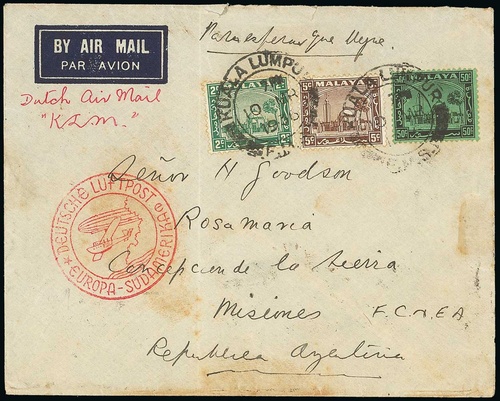 BY AIR MAIL
PAR AVION
Para esperar que llegue
Dutch Air Mail
"KLM."
KUALA LUMPUR
MALAYA
2c
MALAYA
5c 5c
MALAYA
50c 50c
50c 50c
Señor H Goodson
Rosamaria
Concepcion de la Sierra
Misiones F.C.N.E.A
Republica Argentina
DEUTSCHE LUFTPOST
EUROPA-SÜDAMERIKA